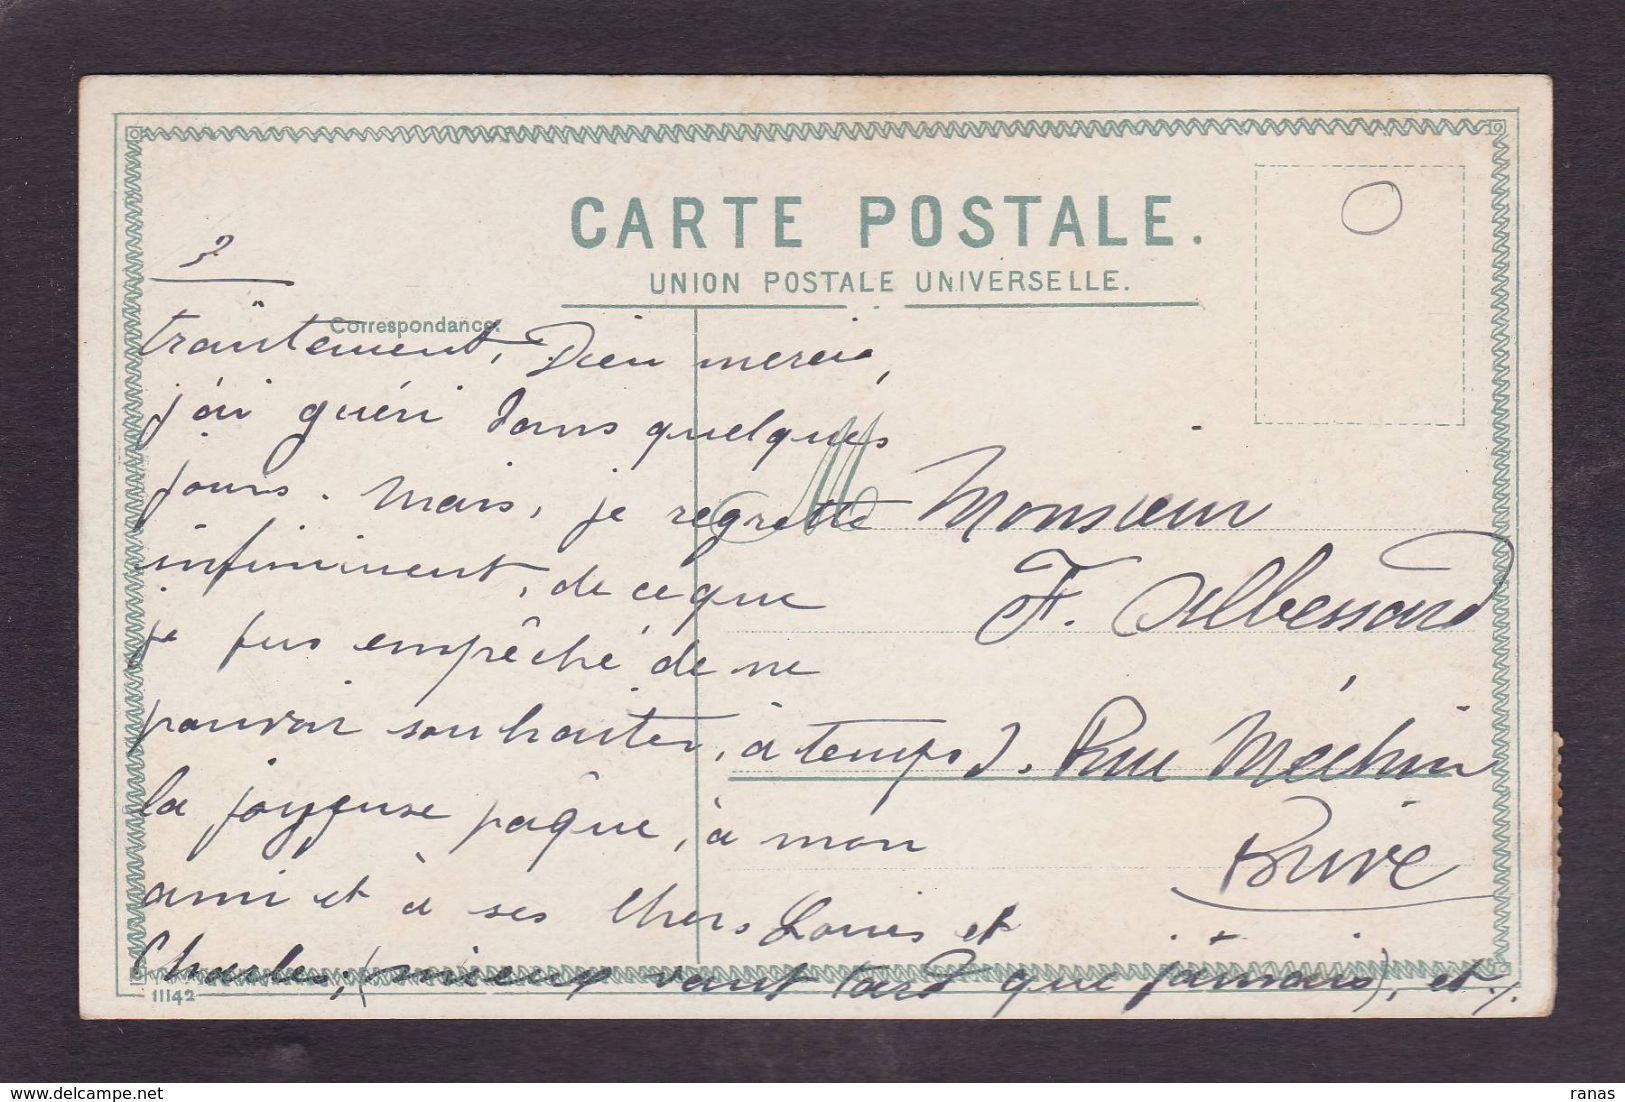 CARTE POSTALE.
UNION POSTALE UNIVERSELLE.
Correspondance.
traitement, Dieu merci,
j'ai guéri dans quelques
jours. Mais, je regrette
infiniment, de ce que
je fus empêché de ne
pouvoir souhaiter, à temps
la joyeuse pâque, à mon
ami et à ses chers Louis et
Charles; (mieux vaut tard que jamais), et ./.
M
Monsieur
F. Albessard
Rue Méchin
Brive
11142
ranas
www.delcampe.net